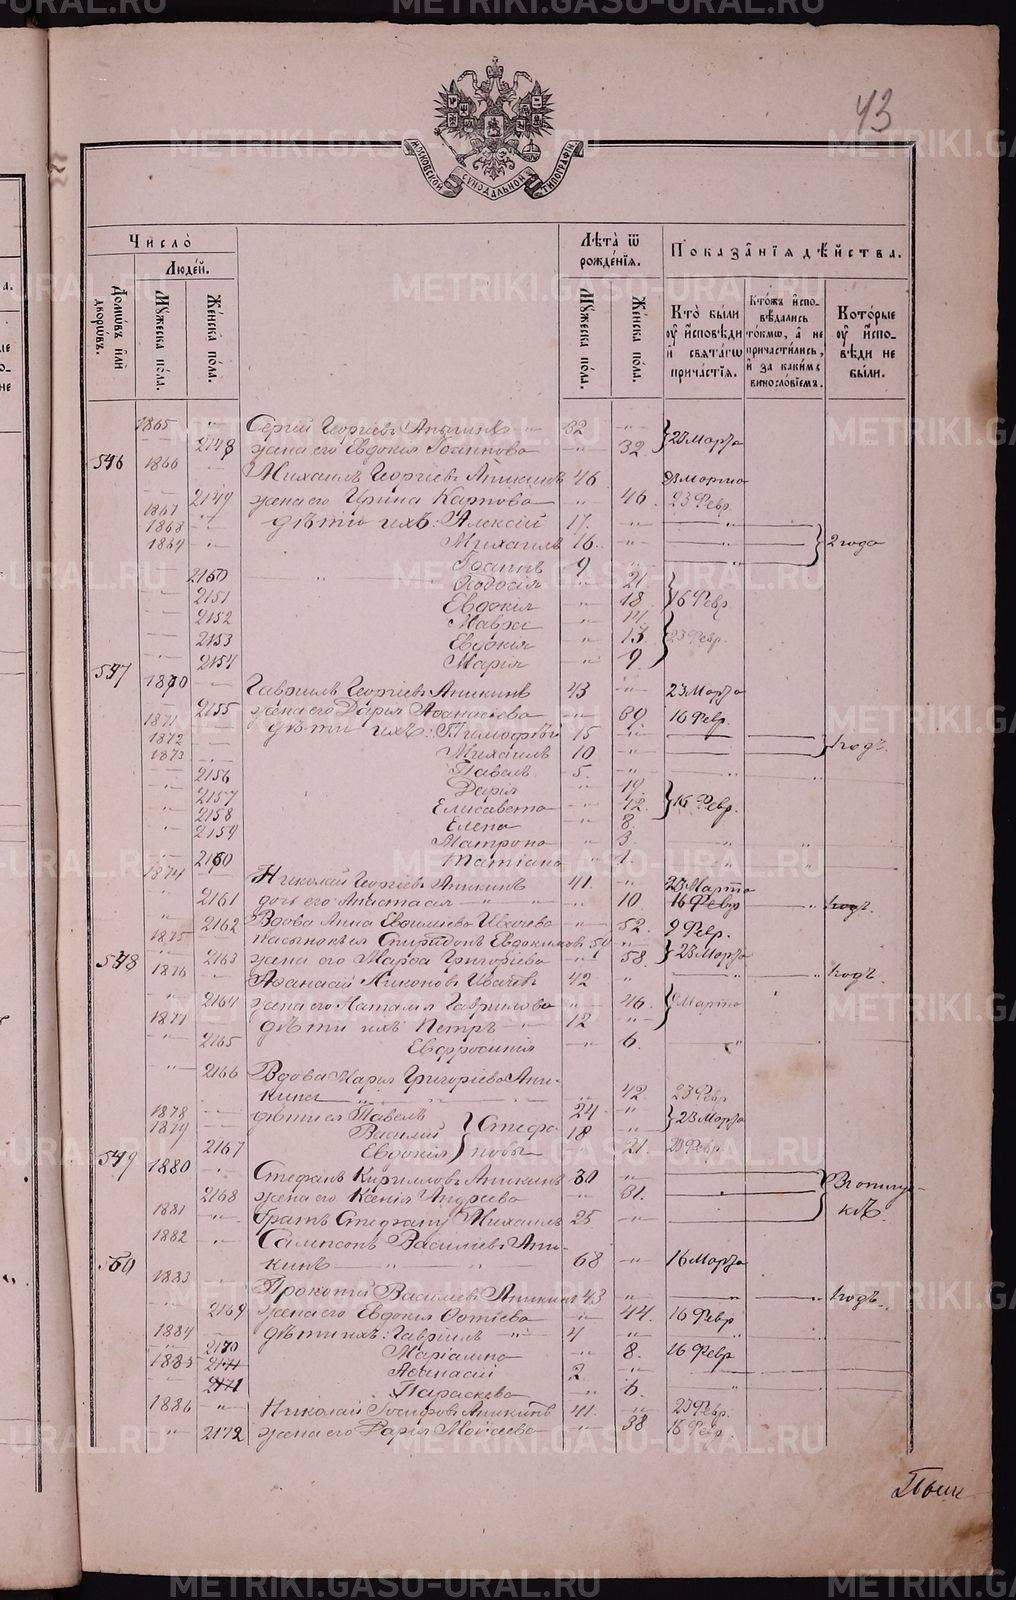 43
МОСКОВСКОЙ СѴНОДАЛЬНОЙ ТИПОГРАФІИ
Число̀
Людей.
Домѡвъ и҆лѝ дворѡвъ.
Мꙋжеска по́ла.
Же́нска по́ла.
Лѣта̀ ѿ рожде́нїѧ.
Мꙋжеска по́ла.
Же́нска по́ла.
Показа̑нїѧ дѣ́йства.
Кто̀ бы́ли оу҆ и҆сповѣди и҆ свѧта́гѡ прича́стїѧ.
Кто́жъ и҆спо-вѣдались то́кмѡ, а҆ не причасти́лись, и҆ за каки́мъ винослові́емъ.
Кото́рые оу҆ и҆спо-вѣди не бы́ли.
1865 Сергій Георгіевъ Аникинъ 32
2148 жена его Евдокія Іоаннова 32 23 Марта
546 1866 Михаилъ Георгіевъ Аникинъ 46 23 Марта
2149 жена его Ирина Карпова 46 23 Февр.
1867 дѣти ихъ: Алексій 17
1868 Михаилъ 16 2 года
1869 Іоаннъ 9
2150 Ѳеодосія 21
2151 Евдокія 18 16 Февр
2152 Мавра 14
2153 Евдокія 13 23 Февр.
2154 Марія 9
547 1870 Гавріилъ Георгіевъ Аникинъ 43 23 Марта
2155 жена его Дарья Аѳанасіева 39 16 Февр.
1871 дѣти ихъ: Тимоѳей 15
1872 Михаилъ 10 1 годъ
1873 Павелъ 5
2156 Дарія 19
2157 Елисавета 12 16 Февр.
2158 Елена 8
2159 Матрона 3
2160 Татіана 1
1874 Николай Георгіевъ Аникинъ 41 23 Марта
2161 дочь его Анастасія 10 16 Февр 1 годъ.
2162 Вдова Анна Евѳиміева Ивачева 52 9 Февр.
1875 пасынокъ ея Спиридонъ Евдокимовъ 50
2163 жена его Марѳа Григоріева 58 23 Марта
548 1876 Аѳанасій Никоновъ Ивачевъ 42 1 годъ.
2164 жена его Наталія Гаврилова 46 Марта
1877 дѣти ихъ Петръ 12
2165 Евфросинія 6
2166 Вдова Марія Григоріева Ани-
кина 42 23 Февр
1878 дѣти ея Павелъ 24
1879 Василій Стефа- 18 23 Марта
2167 Евдокія новы 21 23 Февр.
549 1880 Стефанъ Кирилловъ Аникинъ 30 В отлуч-
2168 жена его Ксенія Андреева 31 кѣ.
1881 братъ Стефану Михаилъ 25
1882 Сампсонъ Василіевъ Ани-
550 кинъ 68 16 Марта
1883 Прокопій Василіевъ Аникинъ 43 1 годъ.
2169 жена его Евдокія Фотіева 44 16 Февр
1884 дѣти ихъ: Гавріилъ 4
2170 Маріамна 8 16 Февр
1885 Аѳанасій 2
2171 Параскева 6
1886 Николай Іосифовъ Аникинъ 41 23 Февр.
2172 жена его Дарія Моисеева 38 16 Февр.
METRIKI.GASO-URAL.RU